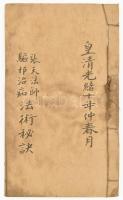 皇清光緒十年仲春月
張天法師
驅邪治病
法術秘訣